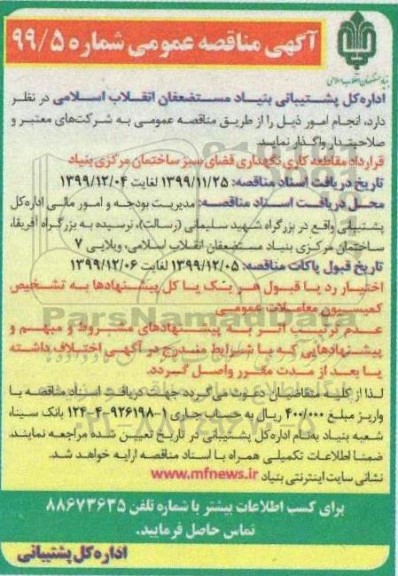 آگهی مناقصه عمومی شماره ۹۹/۵
بنیاد مستضعفان انقلاب اسلامی
اداره‌کل پشتیبانی بنیاد مستضعفان انقلاب اسلامی در نظر
دارد، انجام امور ذیل را از طریق مناقصه عمومی به شرکت‌های معتبر و
صلاحیتدار واگذار نماید
قرارداد مقاطعه کاری نگهداری فضای سبز ساختمان مرکزی بنیاد
تاریخ دریافت اسناد مناقصه: ۱۳۹۹/۱۱/۲۵ لغایت ۱۳۹۹/۱۲/۰۴
محل دریافت اسناد مناقصه: مدیریت بودجه و امور مالی اداره‌کل
پشتیبانی واقع در بزرگراه شهید سلیمانی (رسالت)، نرسیده به بزرگراه آفریقا،
ساختمان مرکزی بنیاد مستضعفان انقلاب اسلامی، ویلایی ۷
تاریخ قبول پاکات مناقصه: ۱۳۹۹/۱۲/۰۵ لغایت ۱۳۹۹/۱۲/۰۶
اختیار رد یا قبول هر یک یا کل پیشنهادها به تشخیص
کمیسیون معاملات عمومی
عدم ترتیب اثر به پیشنهادهای مشروط و مبهم و
پیشنهادهایی که با شرایط مندرج در آگهی اختلاف داشته
یا بعد از مدت مقرر واصل گردد.
لذا از کلیه متقاضیان دعوت می‌گردد جهت دریافت اسناد مناقصه با
واریز مبلغ ۴۰۰/۰۰۰ ریال به حساب جاری ۱-۹۲۶۱۹۸-۴-۱۲۴ بانک سینا،
شعبه بنیاد به‌نام اداره‌کل پشتیبانی در تاریخ تعیین شده مراجعه نمایند.
ضمنا اطلاعات تکمیلی همراه با اسناد مناقصه ارایه خواهد شد.
نشانی سایت اینترنتی بنیاد www.mfnews.ir
برای کسب اطلاعات بیشتر با شماره تلفن ۸۸۶۷۳۶۳۵
تماس حاصل فرمایید.
اداره‌کل پشتیبانی
ParsNamadData